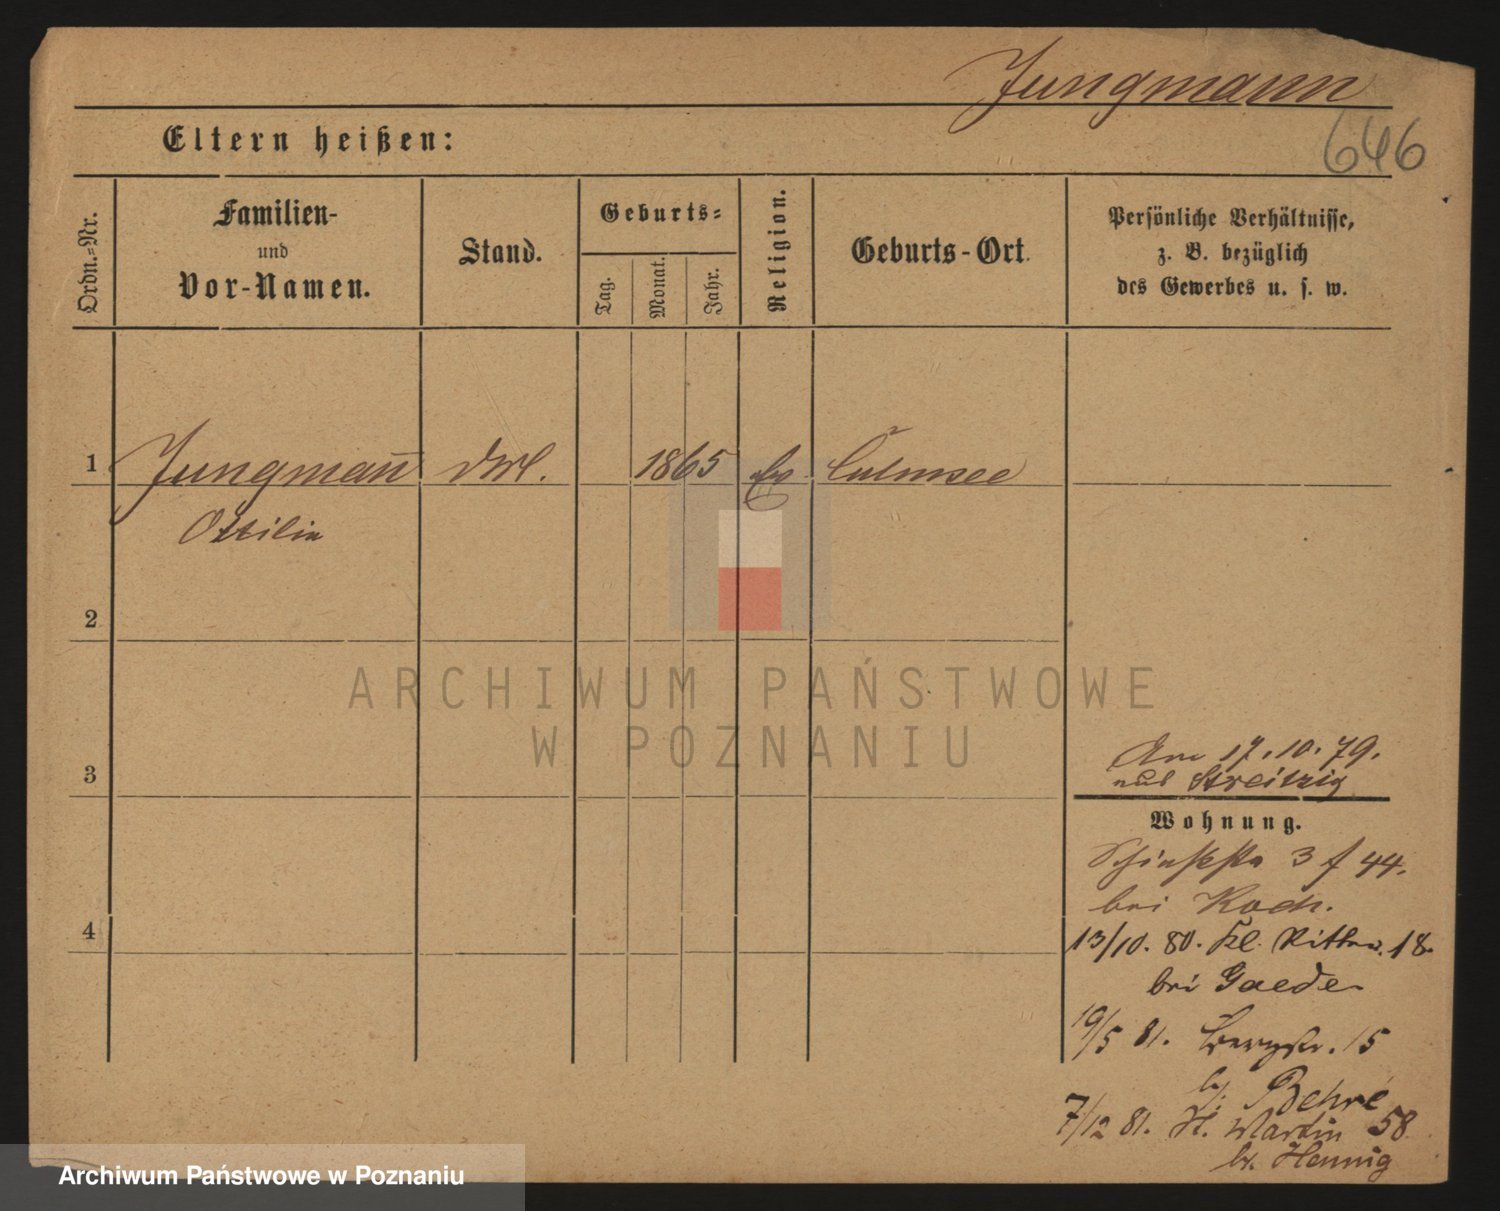 Jungmann
646
Eltern heißen:
Ordn.-Nr.
Familien-
und
Vor-Namen.
Stand.
Geburts-
Tag.
Monat.
Jahr.
Religion.
Geburts-Ort.
Persönliche Verhältnisse,
z. B. bezüglich
des Gewerbes u. s. w.
1 Jungmañ 1865 Culmsee
Ottilie
2
3
4
Am 17.10.79.
aus Streitzig
Wohnung.
3 f 44.
bei Koch.
13/10. 80. Kl. Ritterst. 18.
bei Gaede
19/5 81. Bergstr. 15
bei Behre
7/12 81. St. Martin 58
b. Hennig
ARCHIWUM PAŃSTWOWE
W POZNANIU
Archiwum Państwowe w Poznaniu